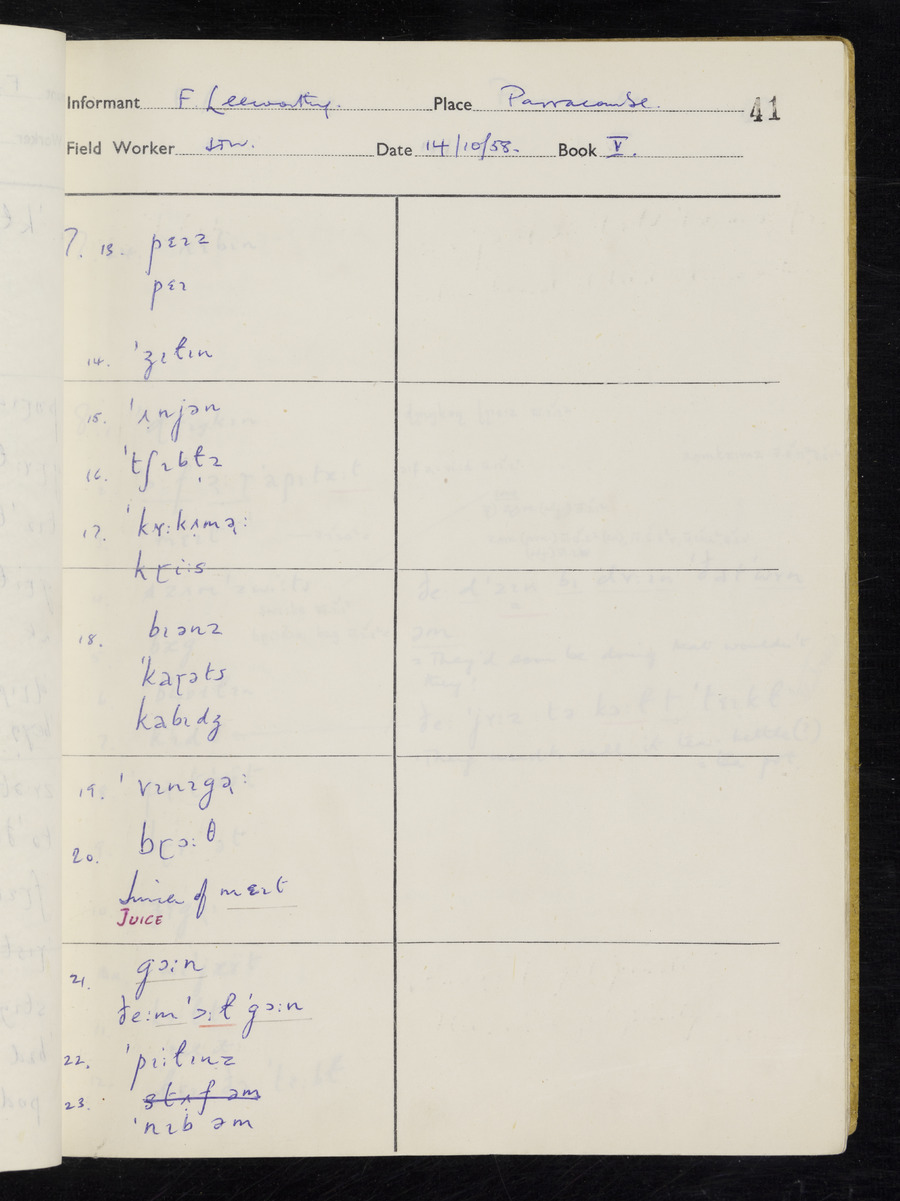 Informant F. Leeworthy. Place Parracombe. 41
Field Worker Date 14/10/58. Book V.
7. 13. pɛɪz
pɛɪ
14. 'ʒɪt̬ɪn
15. 'ʌ̣njən
16. 'tʃɪbt̬z
17. 'kʏ:kʌmə̢:
kɽi:s
18. bɪənz
'kaɽəts
kabɪdʒ
19. 'vɪnɪgə̢:
20. bɽɔ:θ
Juice of mɛɪt
JUICE
21. gɔ:n
ðe:m 'ɔ:t̬ 'gɔ:n
22. 'pɪit̬ɪnz
23. ʒtʌ̣f əm
'nɪb əm